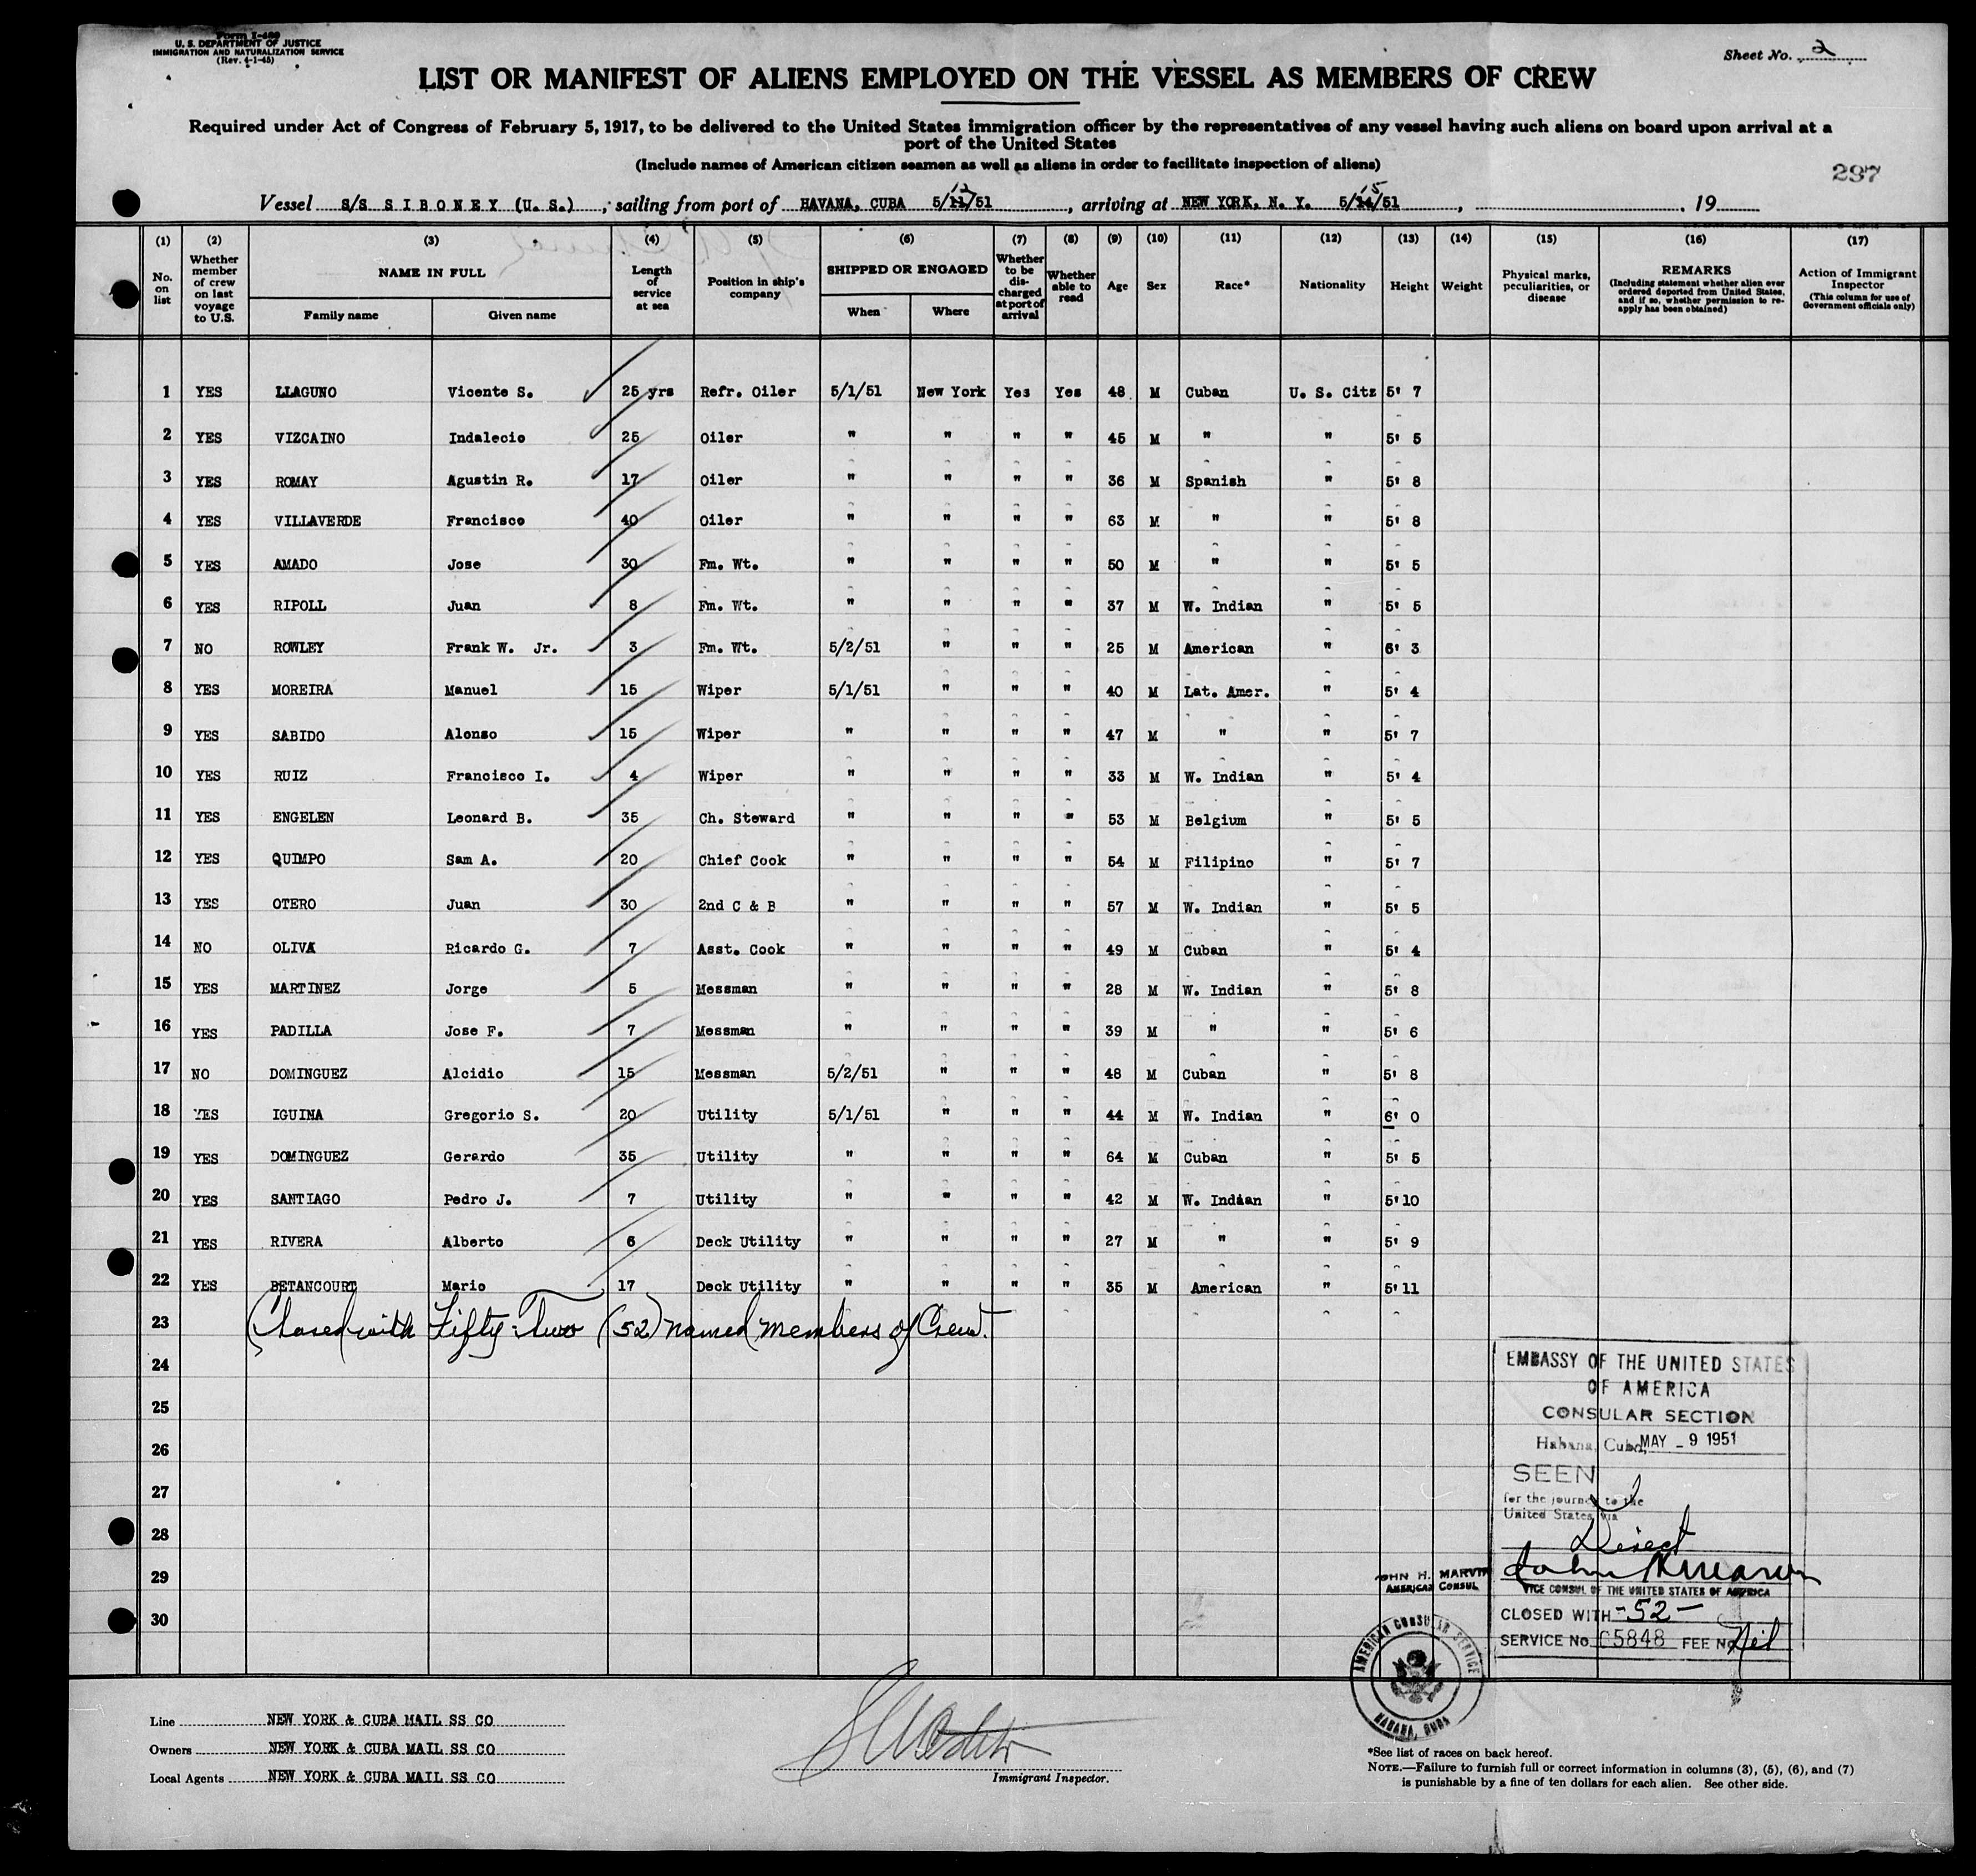 Form I-489
U. S. DEPARTMENT OF JUSTICE
IMMIGRATION AND NATURALIZATION SERVICE
(Rev. 4-1-45)
Sheet No. 2
LIST OR MANIFEST OF ALIENS EMPLOYED ON THE VESSEL AS MEMBERS OF CREW
Required under Act of Congress of February 5, 1917, to be delivered to the United States immigration officer by the representatives of any vessel having such aliens on board upon arrival at a
port of the United States
(Include names of American citizen seamen as well as aliens in order to facilitate inspection of aliens)
297
Vessel S/S SIBONEY (U. S.), sailing from port of HAVANA, CUBA 5/11/51 12, arriving at NEW YORK, N. Y. 5/14/51 15, 19
(1) (2) (3) (4) (5) (6) (7) (8) (9) (10) (11) (12) (13) (14) (15) (16) (17)
No. on list
Whether member of crew on last voyage to U.S.
NAME IN FULL
Family name Given name
Length of service at sea
Position in ship's company
SHIPPED OR ENGAGED
When Where
Whether to be discharged at port of arrival
Whether able to read
Age Sex Race* Nationality Height Weight
Physical marks, peculiarities, or disease
REMARKS
(Including statement whether alien ever ordered deported from United States, and if so, whether permission to reapply has been obtained)
Action of Immigrant Inspector
(This column for use of Government officials only)
1 YES LLAGUNO Vicente S. 25 yrs Refr. Oiler 5/1/51 New York Yes Yes 48 M Cuban U. S. Citz 5' 7
2 YES VIZCAINO Indalecio 25 Oiler " " " " 45 M " " 5' 5
3 YES ROMAY Agustin R. 17 Oiler " " " " 36 M Spanish " 5' 8
4 YES VILLAVERDE Francisco 40 Oiler " " " " 63 M " " 5' 8
5 YES AMADO Jose 30 Fm. Wt. " " " " 50 M " " 5' 5
6 YES RIPOLL Juan 8 Fm. Wt. " " " " 37 M W. Indian " 5' 5
7 NO ROWLEY Frank W. Jr. 3 Fm. Wt. 5/2/51 " " " 25 M American " 6' 3
8 YES MOREIRA Manuel 15 Wiper 5/1/51 " " " 40 M Lat. Amer. " 5' 4
9 YES SABIDO Alonso 15 Wiper " " " " 47 M " " 5' 7
10 YES RUIZ Francisco I. 4 Wiper " " " " 33 M W. Indian " 5' 4
11 YES ENGELEN Leonard B. 35 Ch. Steward " " " " 53 M Belgium " 5' 5
12 YES QUIMPO Sam A. 20 Chief Cook " " " " 54 M Filipino " 5' 7
13 YES OTERO Juan 30 2nd C & B " " " " 57 M W. Indian " 5' 5
14 NO OLIVA Ricardo G. 7 Asst. Cook " " " " 49 M Cuban " 5' 4
15 YES MARTINEZ Jorge 5 Messman " " " " 28 M W. Indian " 5' 8
16 YES PADILLA Jose F. 7 Messman " " " " 39 M " " 5' 6
17 NO DOMINGUEZ Alcidio 15 Messman 5/2/51 " " " 48 M Cuban " 5' 8
18 YES IGUINA Gregorio S. 20 Utility 5/1/51 " " " 44 M W. Indian " 6' 0
19 YES DOMINGUEZ Gerardo 35 Utility " " " " 64 M Cuban " 5' 5
20 YES SANTIAGO Pedro J. 7 Utility " " " " 42 M W. Indian " 5'10
21 YES RIVERA Alberto 6 Deck Utility " " " " 27 M " " 5' 9
22 YES BETANCOURT Mario 17 Deck Utility " " " " 35 M American " 5'11
23 Closed with Fifty-Two (52) named members of Crew.
24
25
26
27
28
29
30
EMBASSY OF THE UNITED STATES
OF AMERICA
CONSULAR SECTION
Habana, Cuba, MAY - 9 1951
SEEN
for the journey to the
United States via
Direct
JOHN H. MARVIN
AMERICAN CONSUL
John H Marvin
VICE CONSUL OF THE UNITED STATES OF AMERICA
CLOSED WITH -52-
SERVICE No. C5848 FEE No. Nil
AMERICAN CONSULAR SERVICE
HABANA, CUBA
Line NEW YORK & CUBA MAIL SS CO
Owners NEW YORK & CUBA MAIL SS CO
Local Agents NEW YORK & CUBA MAIL SS CO
Immigrant Inspector.
*See list of races on back hereof.
NOTE.—Failure to furnish full or correct information in columns (3), (5), (6), and (7)
is punishable by a fine of ten dollars for each alien. See other side.